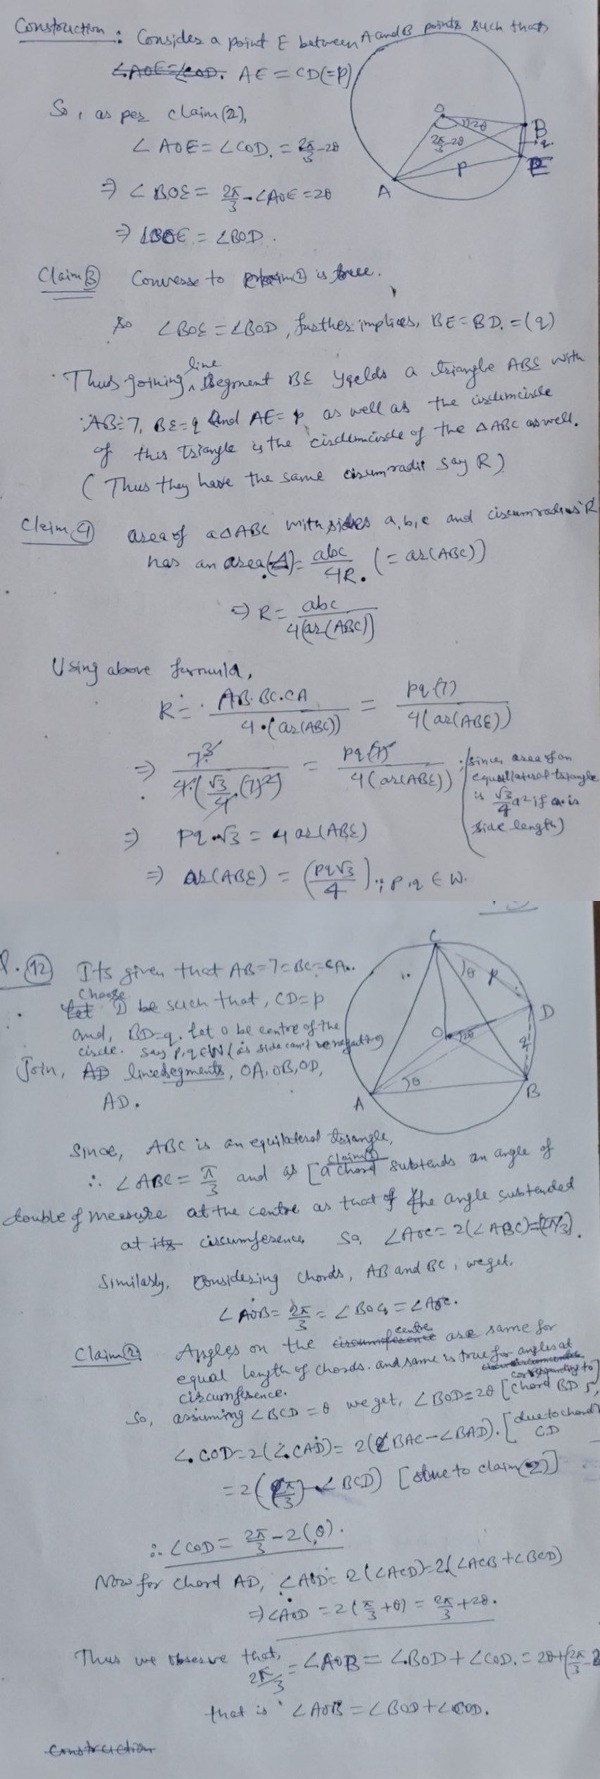 Construction: Consider a point E between A and B points such that
∠AOE=∠COD. AE = CD(=p)
So, as per claim(2),
∠AOE = ∠COD. = 2π/3 - 2θ
⇒ ∠BOE = 2π/3 - ∠AOE = 2θ
⇒ ∠BOE = ∠BOD.
O
2θ
2π/3-2θ
B
q
E
P
A
Claim③ Converse to claim② is true.
So ∠BOE = ∠BOD, further implies, BE = BD. = (q)
Thus joining line segment BE yields a triangle ABE with
∵AB=7, BE=q and AE=p, as well as the circumcircle
of this triangle is the circumcircle of the △ABC as well.
(Thus they have the same circumradii say R)
Claim④ area of a △ABC with sides a,b,c and circumradius R
has an area(△) = abc/4R. (= ar(ABC))
⇒ R = abc/4(ar(ABC))
Using above formula,
R = AB.BC.CA/4.(ar(ABC)) = pq(7)/4(ar(ABE))
⇒ 7³/4.(√3/4.(7)²) = pq(7)/4(ar(ABE))
(since area of an
equilateral triangle
is √3/4 a² if a is
side length)
⇒ pq.√3 = 4 ar(ABE)
⇒ ar(ABE) = (pq√3/4) ; p,q ∈ W.
Q.⑫ Its given that AB=7=BC=CA.
Let Choose D be such that, CD=p
and, BD=q. Let O be centre of the
circle. Say p,q∈W (as side can't be negative)
Join, AD line segments, OA, OB, OD,
AD.
C
θ
P
D
O
2θ
q
A
θ
B
Since, ABC is an equilateral triangle,
∴ ∠ABC = π/3 and as [claim① a chord subtends an angle of
double of measure at the centre as that of the angle subtended
at its circumference. So, ∠AOC = 2(∠ABC)=(2π/3).
Similarly, considering chords, AB and BC, we get,
∠AOB = 2π/3 = ∠BOC = ∠AOC.
Claim② Angles on the circumference centre are same for
equal length of chords. and same is true for angles at
circumference. corresponding to]
So, assuming ∠BCD = θ we get, ∠BOD=2θ [chord BD],
∠COD = 2(∠CAD) = 2(∠BAC-∠BAD). [due to chord
CD
= 2((π/3) - ∠BCD) [due to claim②]
∴ ∠COD = 2π/3 - 2(θ).
Now for chord AD, ∠AOD = 2(∠ACD)=2(∠ACB+∠BCD)
⇒∠AOD = 2(π/3+θ) = 2π/3+2θ.
Thus we observe that,
2π/3 = ∠AOB = ∠BOD + ∠COD. = 2θ+(2π/3-2
that is ∠AOB = ∠BOD+∠COD.
Construction